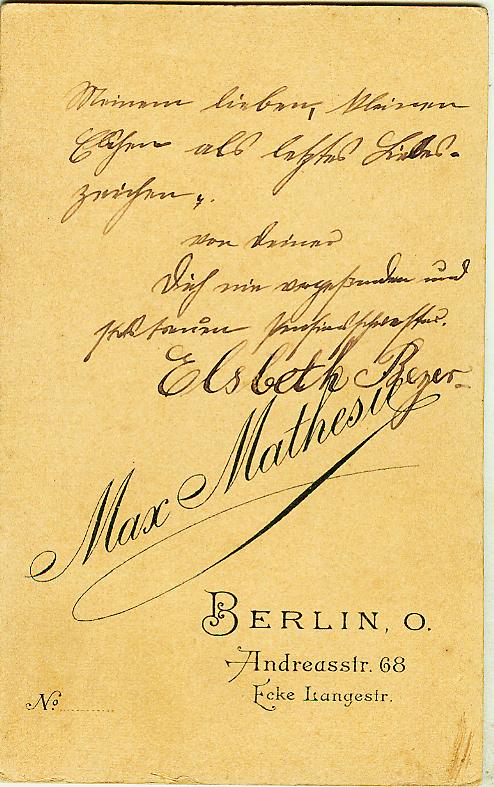 Meinem lieben, kleinen
Elschen als letztes Liebes-
zeichen,
von deiner
Dich nie vergessenden und
stets treuen Pensionsschwester.
Elsbeth Beyer
Max Mathesie
BERLIN, O.
Andreasstr. 68
Ecke Langestr.
No